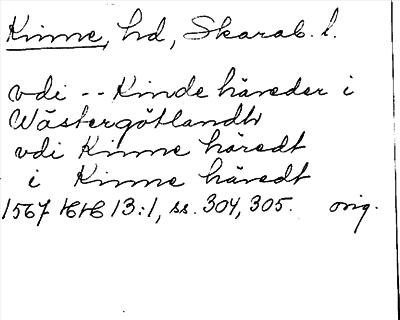 Kinne, hd, Skarab. l.
vdi -- Kinde häreder i
Wästergötlandh
vdi Kinne häredt
i Kinne häredt
1567 HH 13:1, ss. 304, 305. orig.